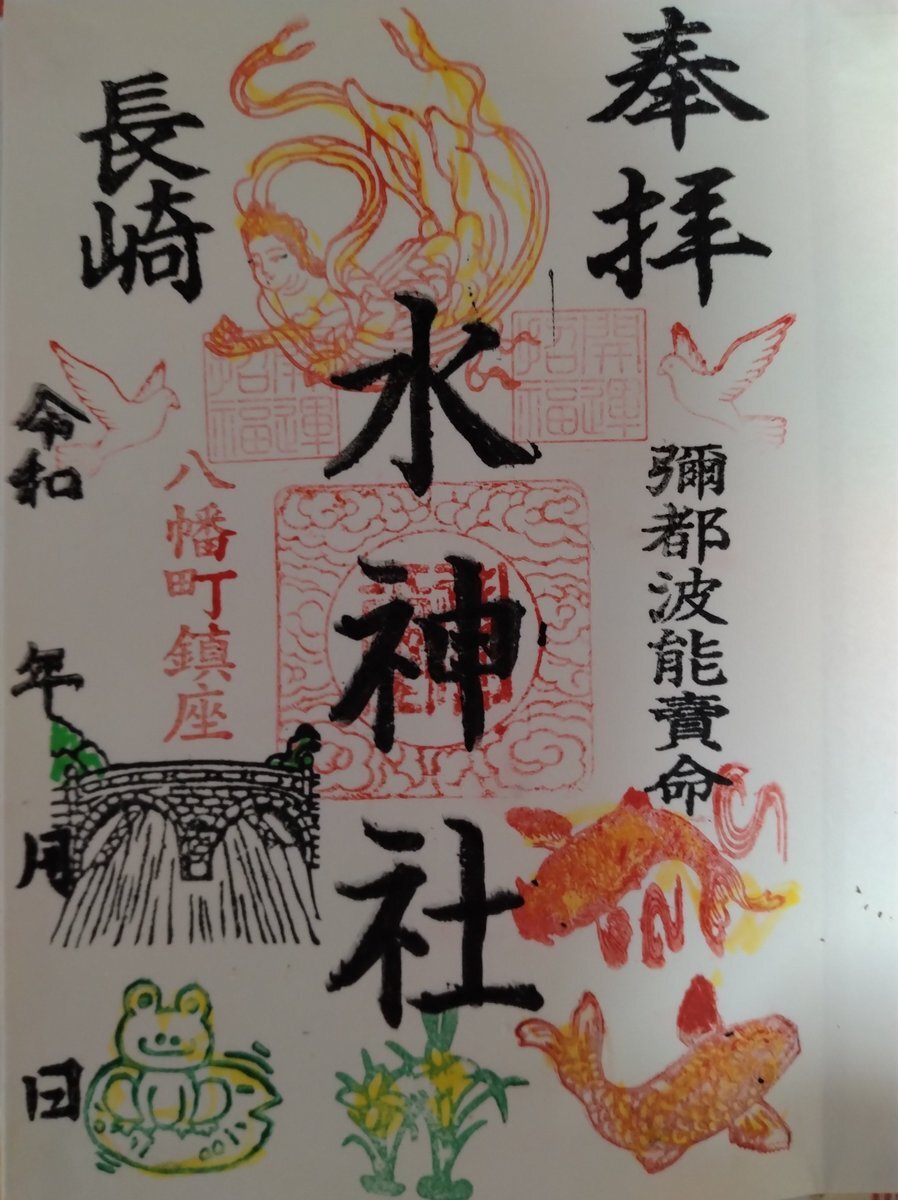 奉拝
彌都波能賣命
開運
招福
水神社
開運
招福
長崎
八幡町鎮座
令和 年 月 日